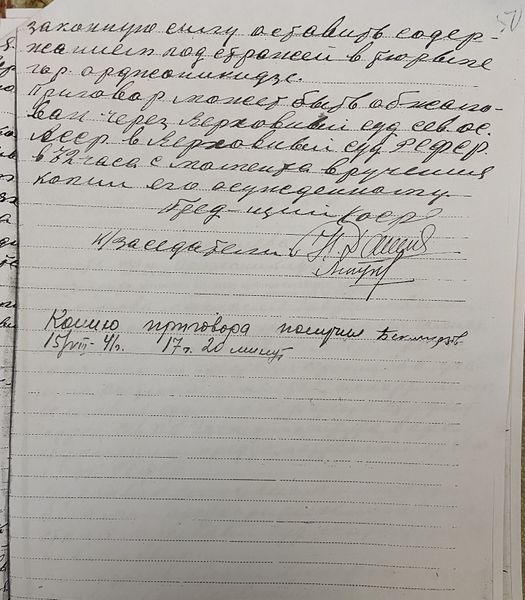 законную силу оставить содер-
жанием под стражей в тюрьме
гор. орджоникидзе.
Приговор может быть обжало-
ван через Верховный суд сев. ос.
АССР в Верховный суд РСФСР
в 72 часа с момента вручения
копии его осужденному.
Пред-щий
н/заседатели
Копию приговора получил
15/VIII 41г. 17 г. 20 минут